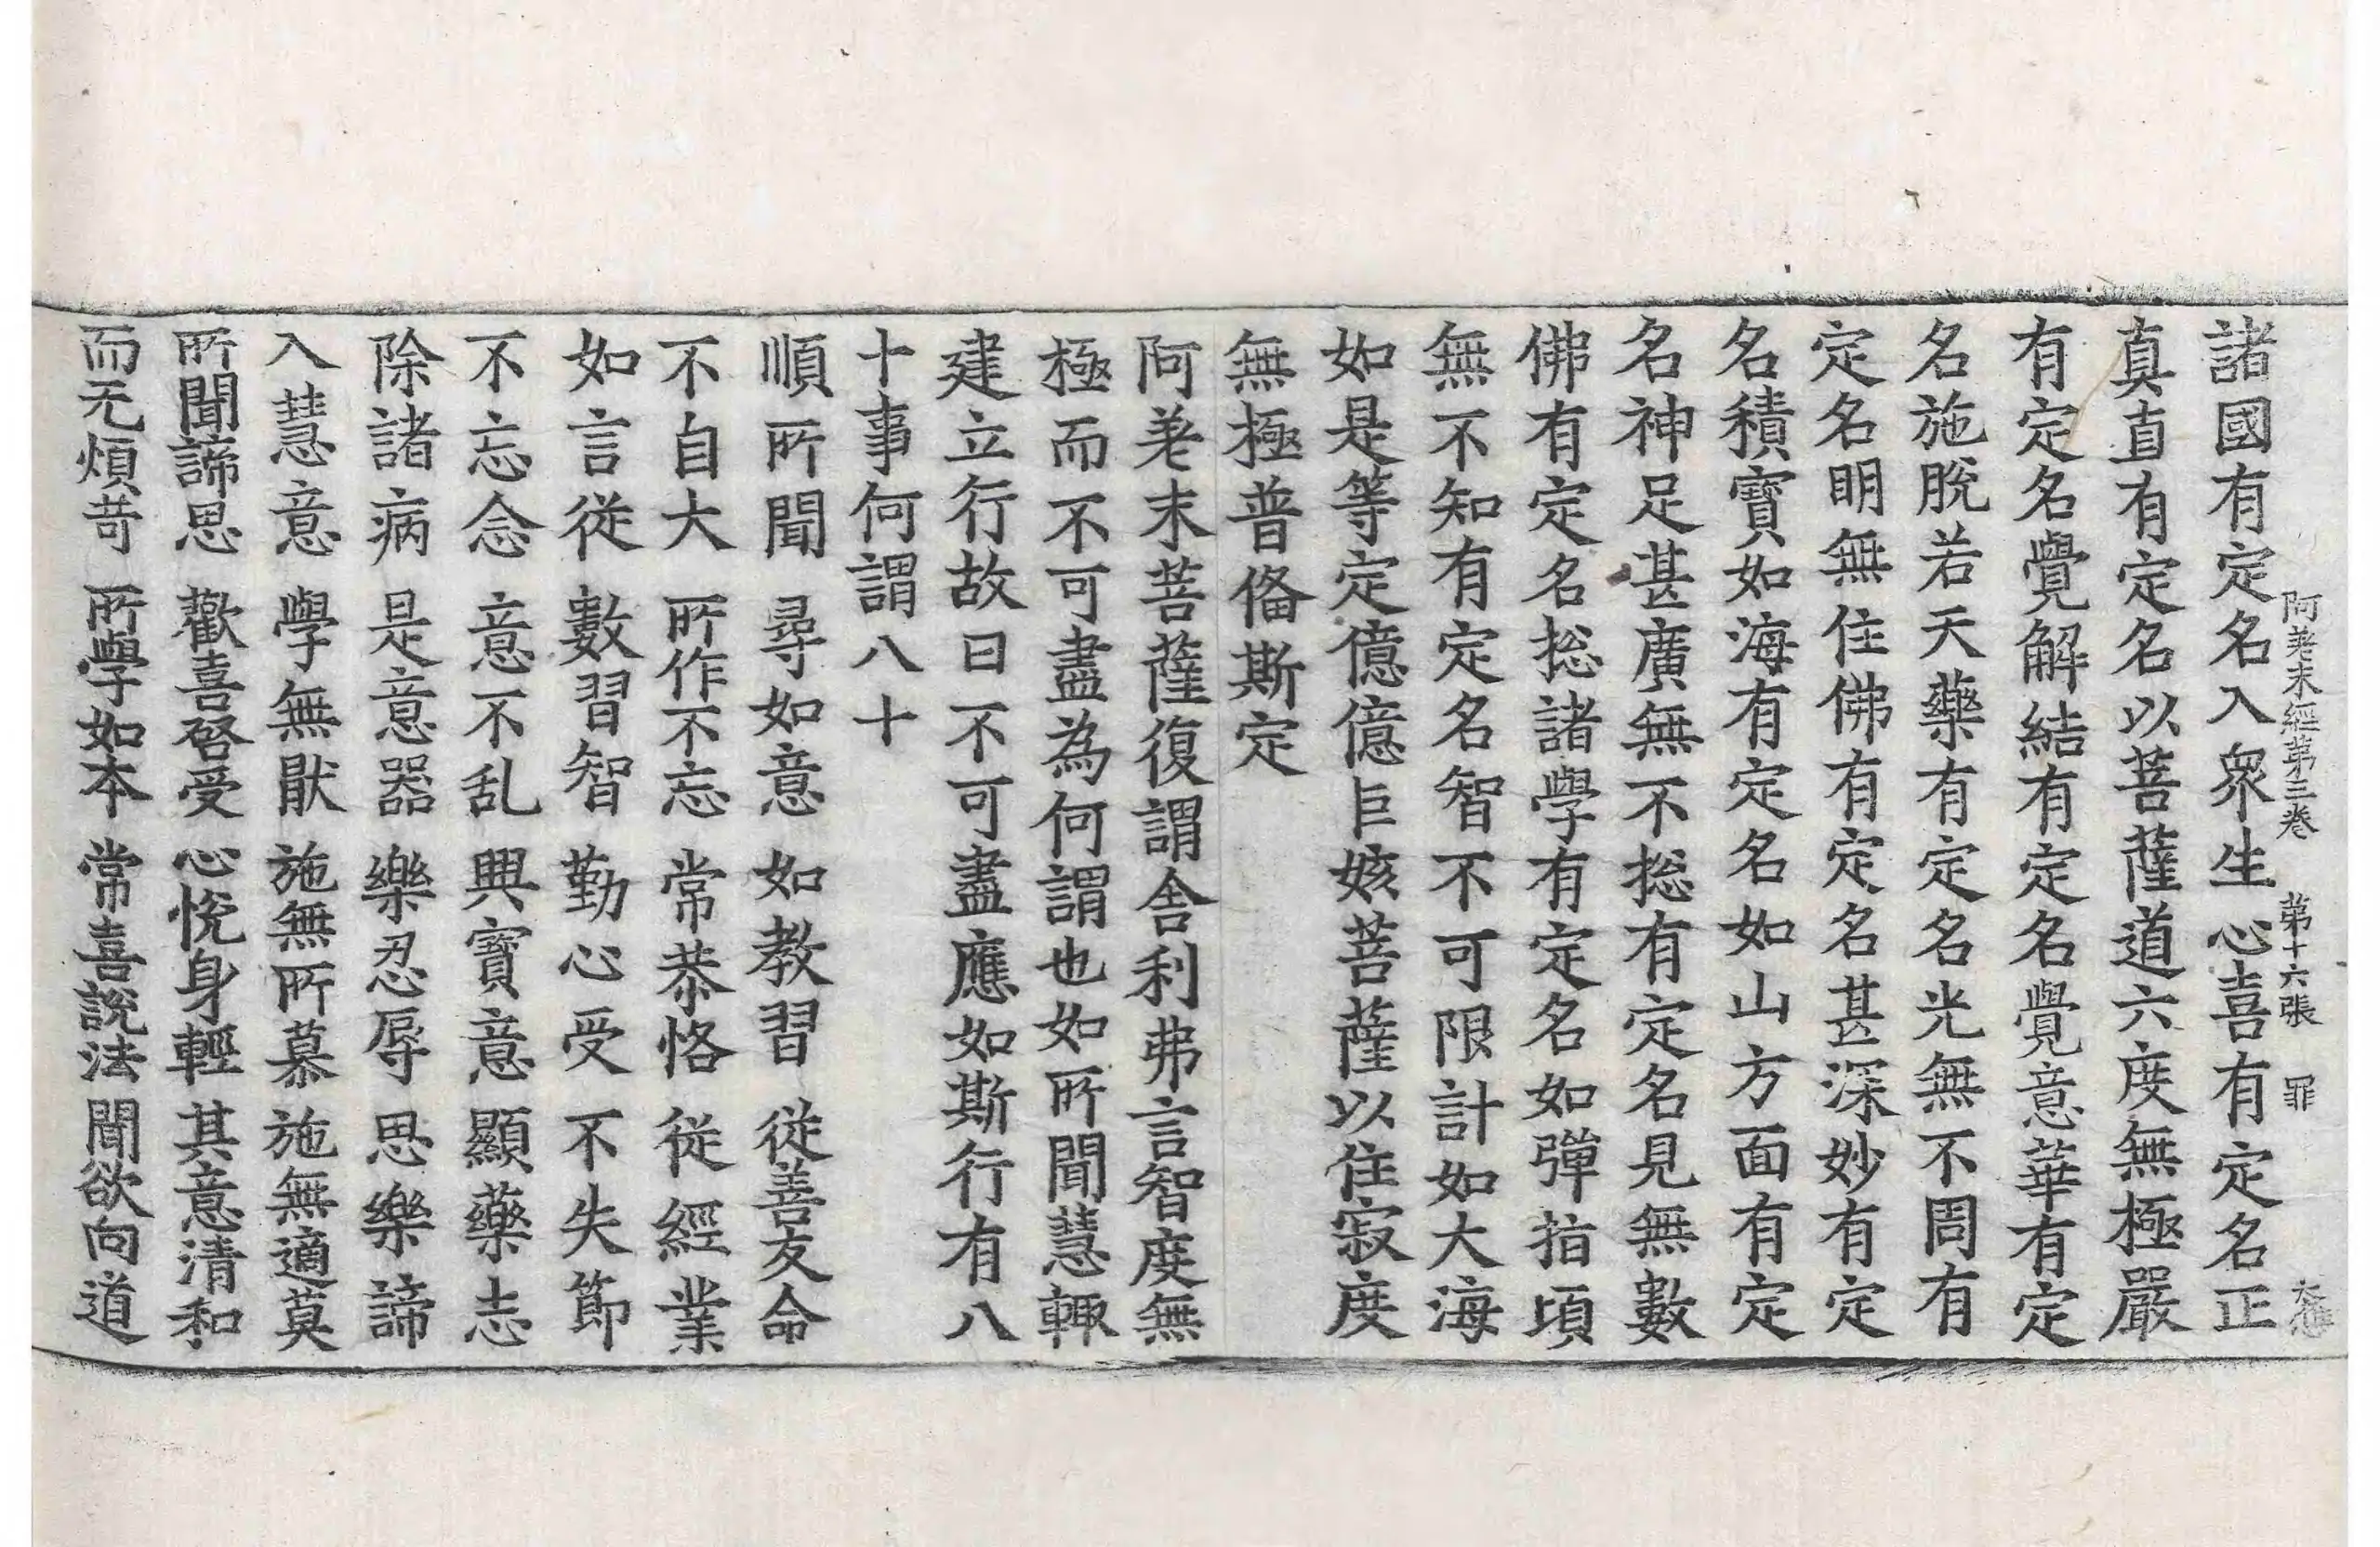 阿差末經第三卷　第十六張　罪
諸國有定名入衆生心喜有定名正
真直有定名以菩薩道六度無極嚴
有定名覺解結有定名覺意華有定
名施脫若天藥有定名光無不周有
定名明無住佛有定名甚深妙有定
名積寶如海有定名如山方面有定
名神足甚廣無不捴有定名見無數
佛有定名捴諸學有定名如彈指頃
無不知有定名智不可限計如大海
如是等定億億巨姟菩薩以住寂度
無極普俻斯定
阿差末菩薩復謂舍利弗言智度無
極而不可盡為何謂也如所聞慧輙
建立行故曰不可盡應如斯行有八
十事何謂八十
順所聞　尋如意　如教習　從善友命
不自大　所作不忘　常恭恪　從經業
如言從　數習智　勤心受　不失節
不忘念　意不乱　興寶意　顯藥志
除諸病　是意器　樂忍辱　思樂諦
入慧意　學無猒　施無所慕　施無適莫
所聞諦思　歡喜啓受　心悅身輕　其意清和
而无煩苛　所學如本　常喜說法　聞欲向道